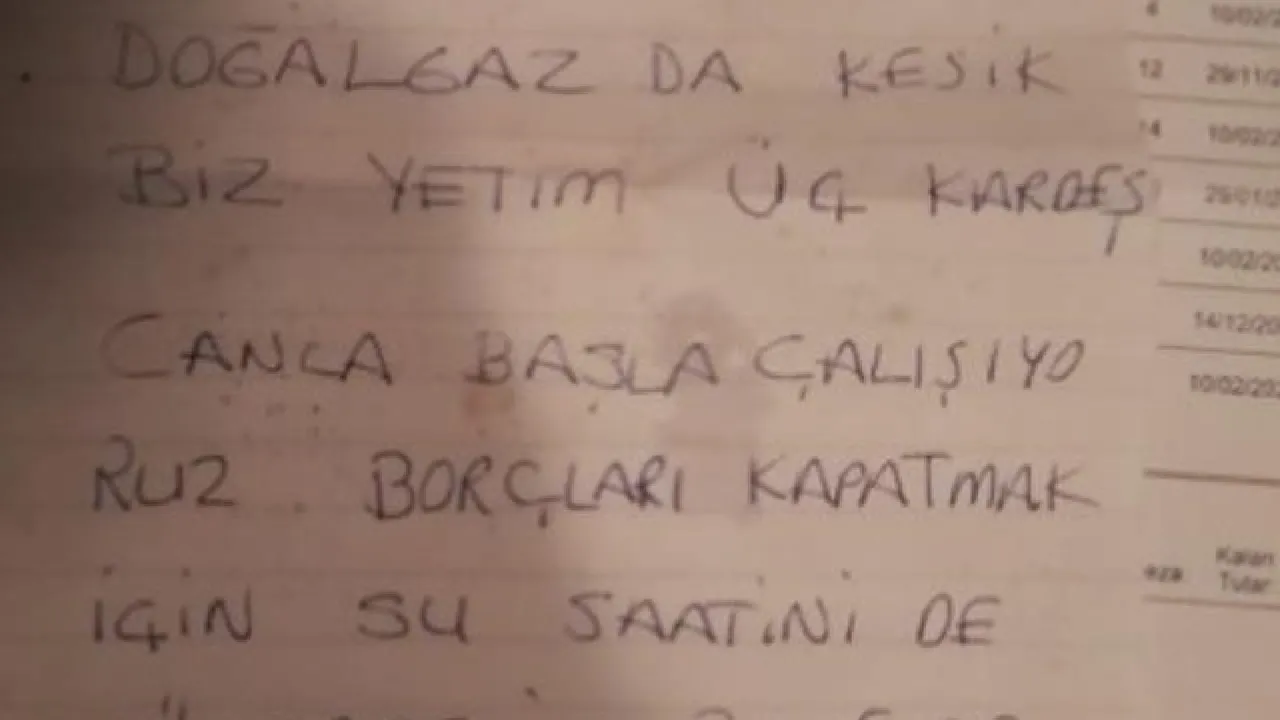 DOĞALGAZ DA KESİK
BİZ YETİM ÜÇ KARDEŞ
CANLA BAŞLA ÇALIŞIYO
RUZ BORÇLARI KAPATMAK
İÇİN SU SAATİNİ DE
4 10/02/2
12 29/11/2
14 10/02/2
10/02/20
14/12/20
10/02/202
Kalan
Tutar